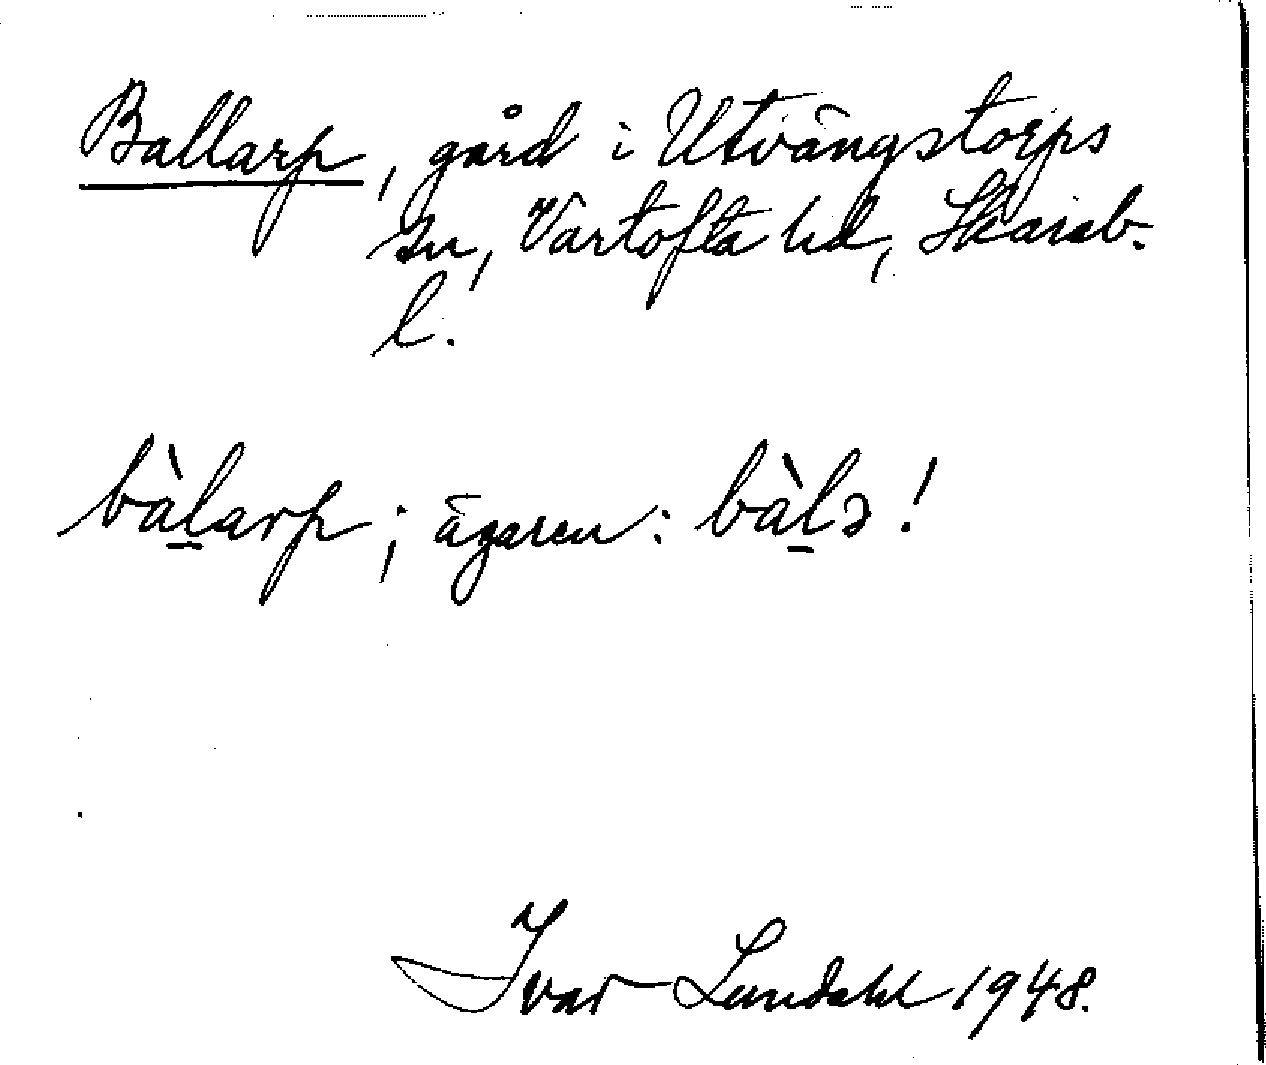 Ballarp, gård i Utvängstorps
sn, Vartofta hd, Skarab.
l.
bàl̲arp; ägaren: bàl̲ə!
Ivar Lundahl 1948.